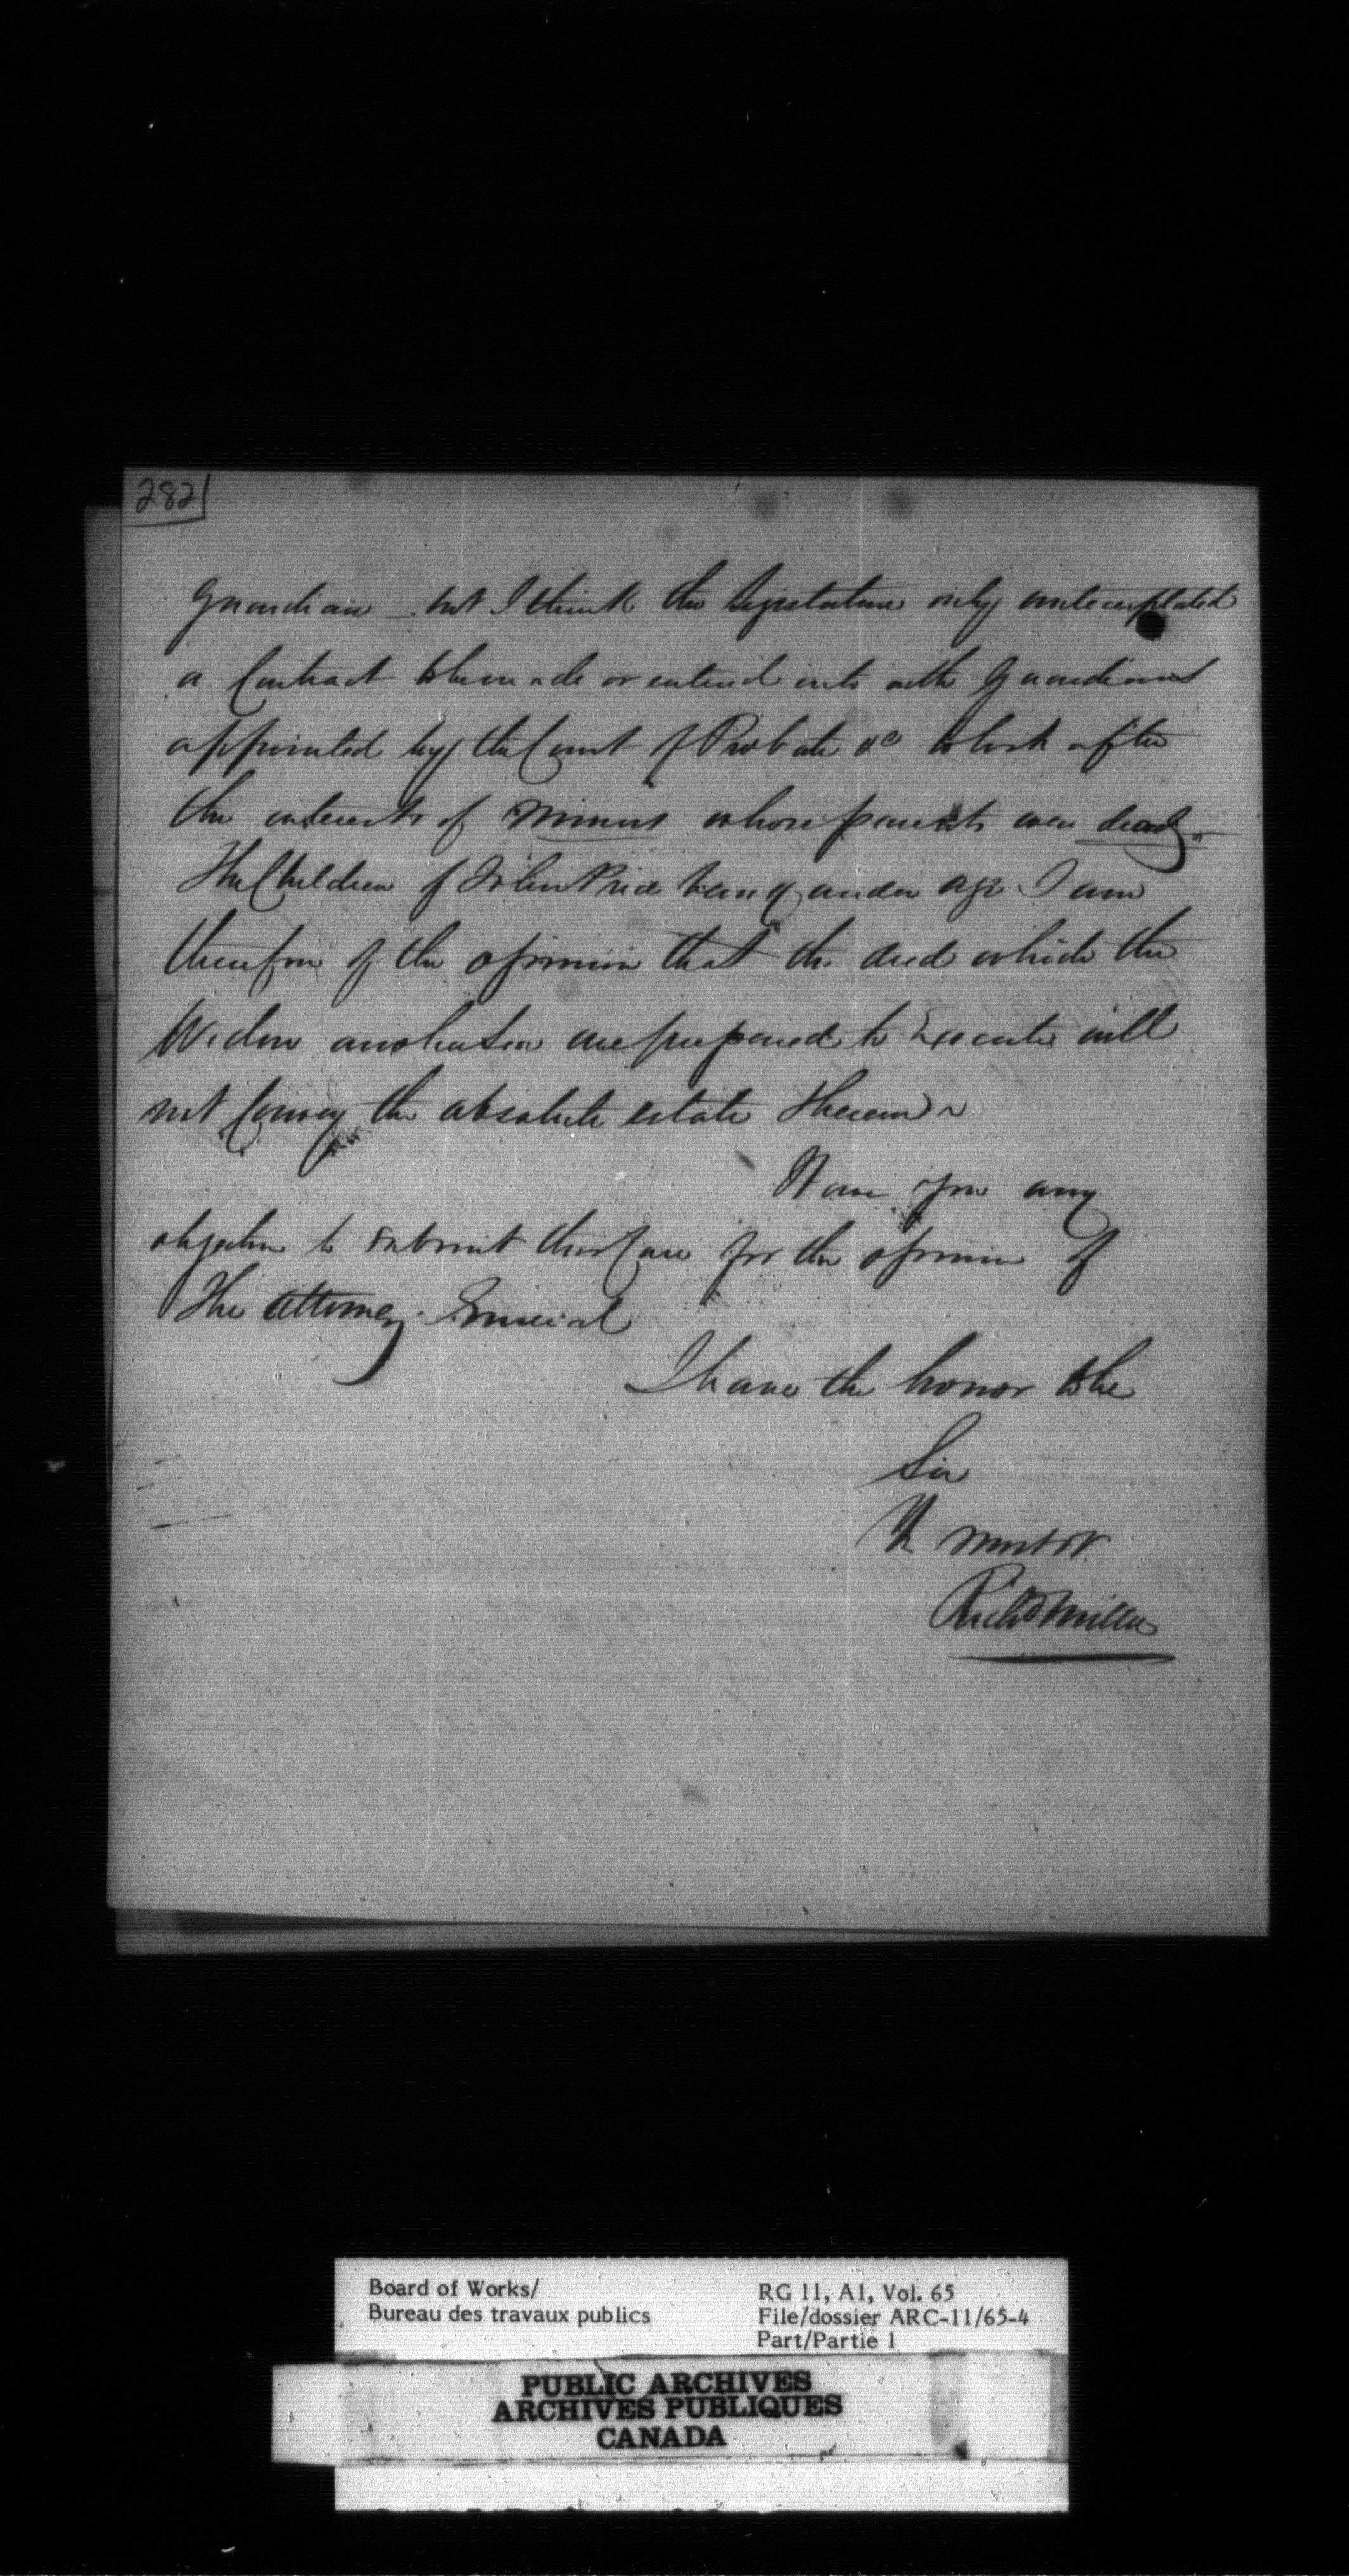 282
Guardian _ but I think the Legislature only contemplated
a Contract to be made or entered into with Guardians
appointed by the Court of Probate &c to look after
the interests of Minors whose parents were dead,
The Children of John Price being under age I am
therefore of the opinion that the deed which the
Widow are prepared to Execute will
not Convey the absolute estate therein
Have you any
objection to submit this Case for the opinion of
The Attorney General
I have the honor to be
Sir
Yr most ob
Richd Miller
Board of Works/
Bureau des travaux publics
RG 11, A1, Vol. 65
File/dossier ARC-11/65-4
Part/Partie 1
PUBLIC ARCHIVES
ARCHIVES PUBLIQUES
CANADA